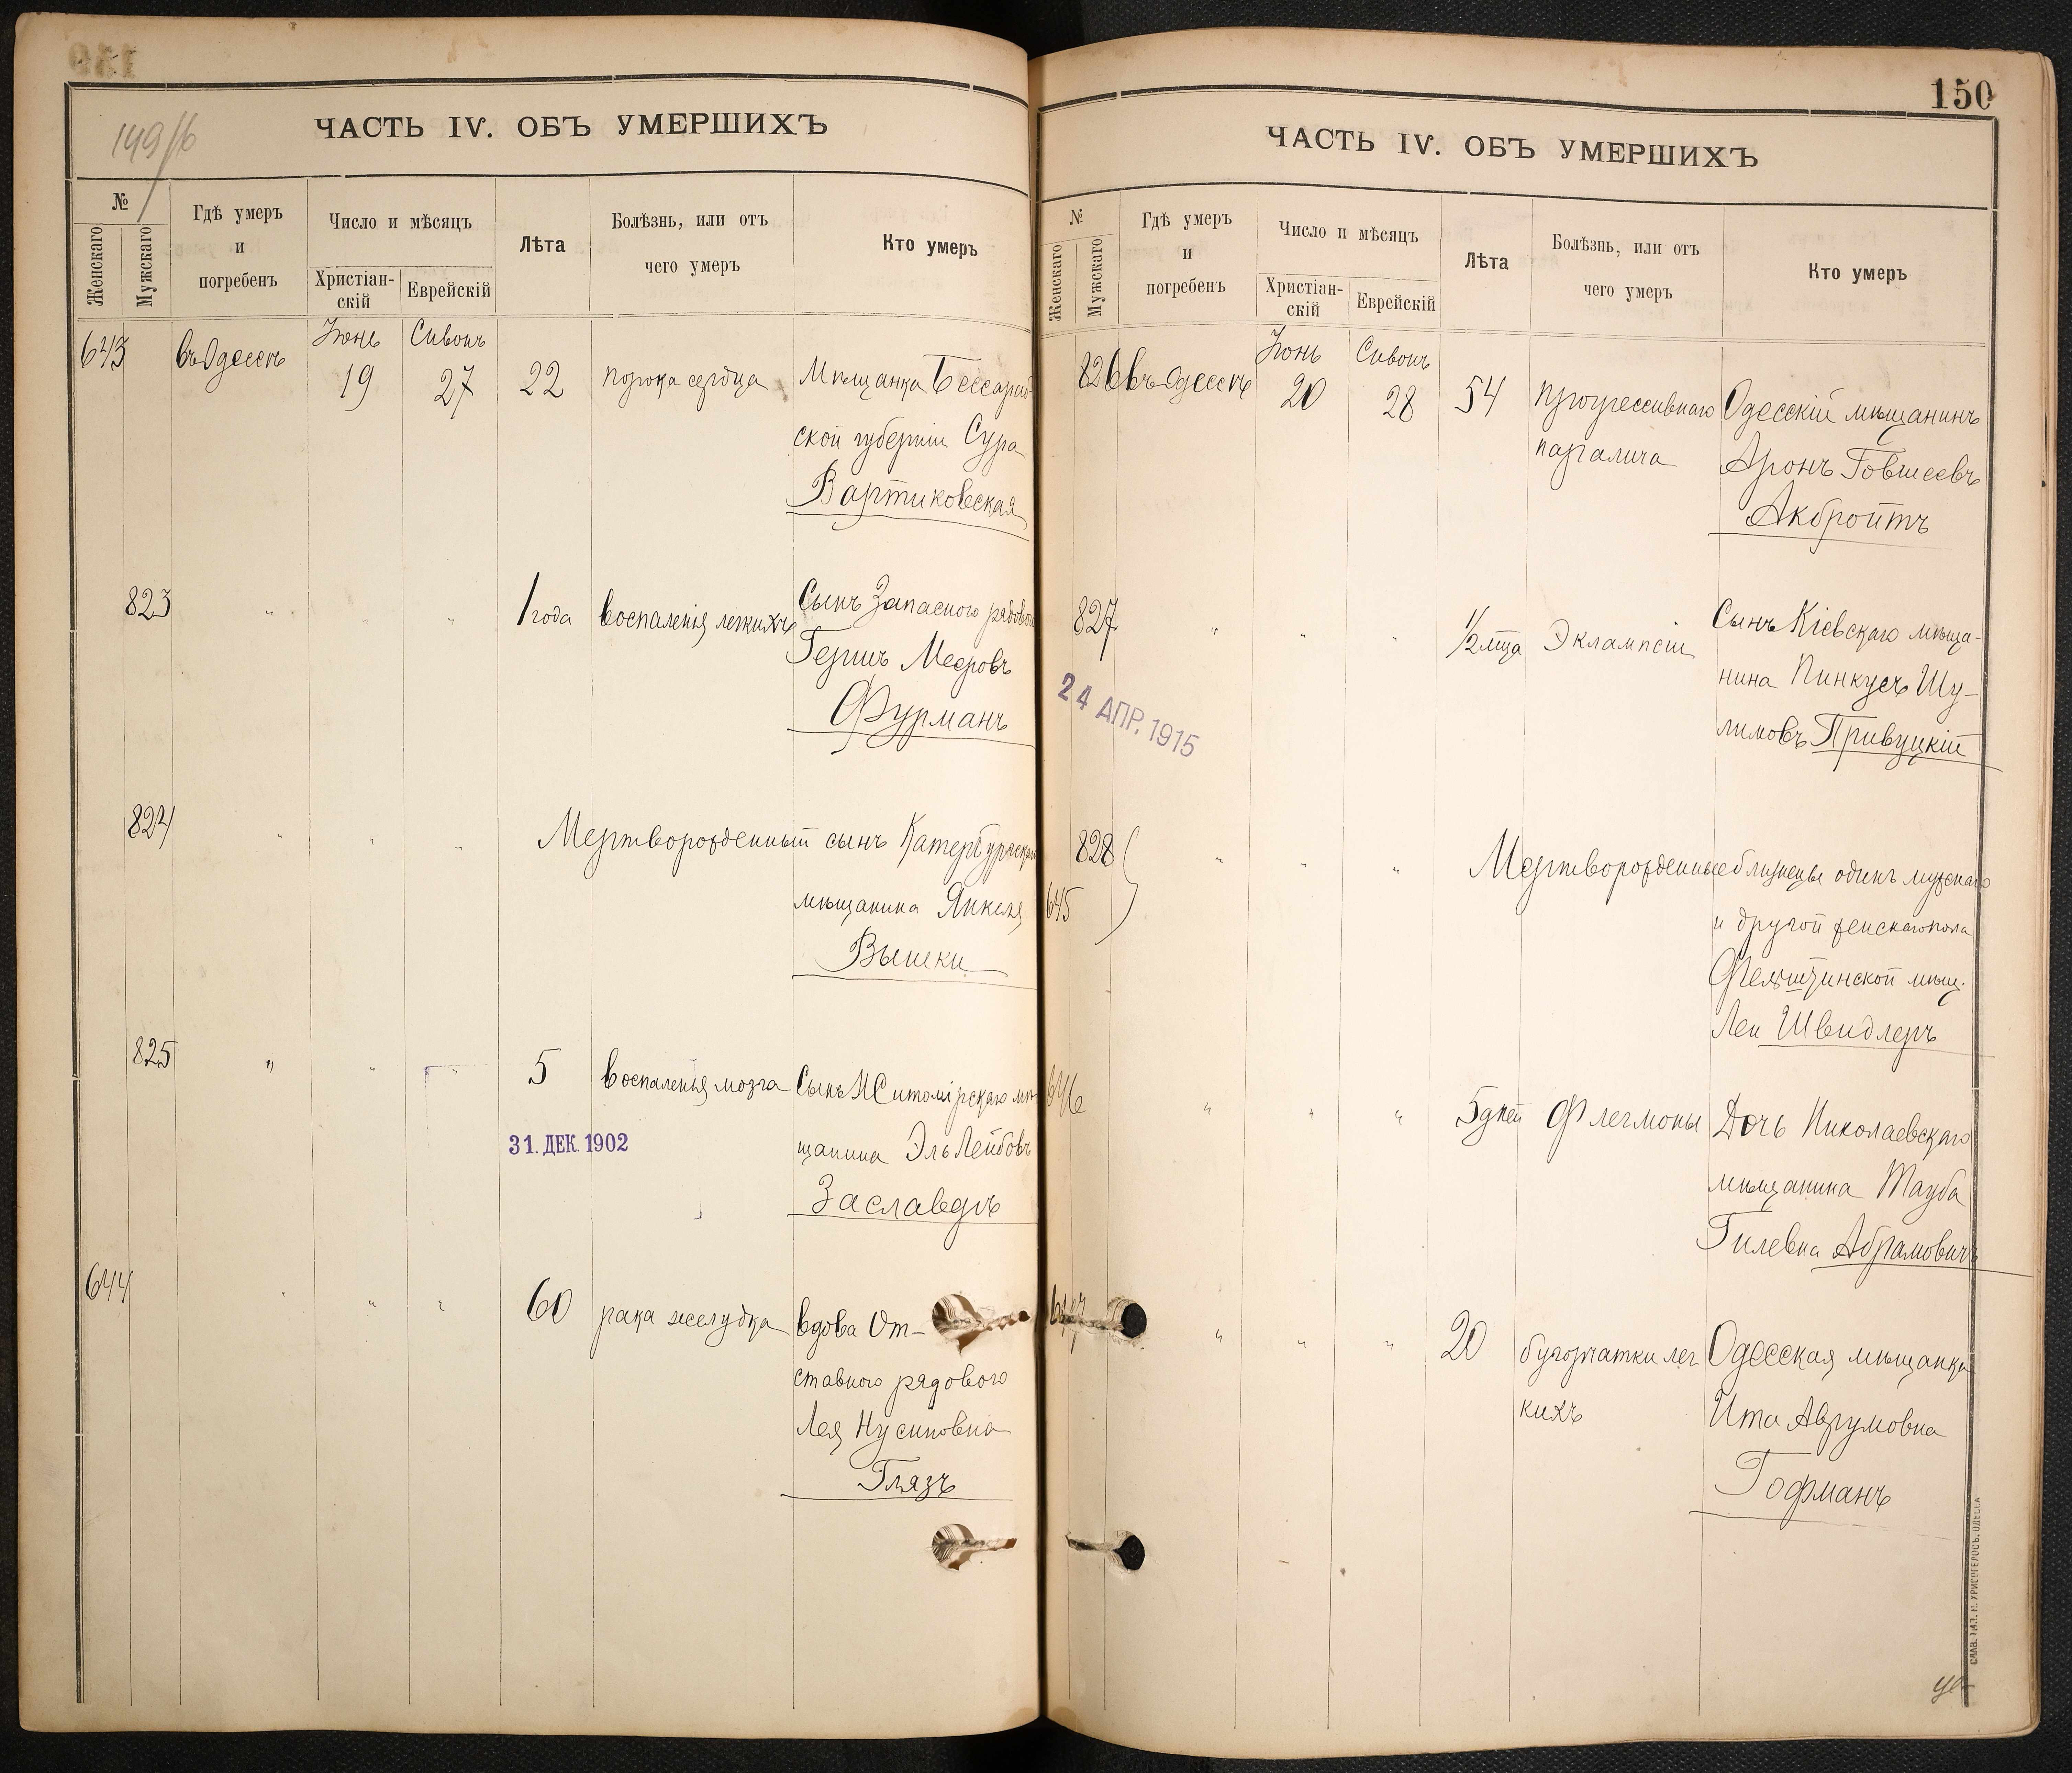 149/б
ЧАСТЬ IV. ОБЪ УМЕРШИХЪ
№
Женскаго
Мужскаго
Гдѣ умеръ
и
погребенъ
Число и мѣсяцъ
Христіан-
скій
Еврейскій
Лѣта
Болѣзнь, или отъ
чего умеръ
Кто умеръ
Іюнь Сивонъ
643 въ Одессѣ 19 27 22 порока сердца Мѣщанка Бессараб
ской губерніи Сура
Вартиковская
823 " " " 1 года воспаленія легкихъ Сынъ Запасного рядового
Гершъ Мееровъ
Фурманъ
824 " " " Мертворожденный сынъ Катербургскаго
мѣщанина Янкеля
Вышки
825 " " " 5 воспаленія мозга Сынъ Житомірскаго мѣ-
31. ДЕК. 1902
щанина Эль Лейбовъ
Заславеръ
644 " " " 60 рака желудка вдова От-
ставного рядового
Лея Нусиновна
Глязъ
150
ЧАСТЬ IV. ОБЪ УМЕРШИХЪ
№
Женскаго
Мужскаго
Гдѣ умеръ
и
погребенъ
Число и мѣсяцъ
Христіан-
скій
Еврейскій
Лѣта
Болѣзнь, или отъ
чего умеръ
Кто умеръ
Іюнь Сивонъ
826 въ Одессѣ 20 28 54 прогрессивнаго Одесскій мѣщанинъ
паралича Аронъ Говшеевъ
Акбройтъ
827 " " " 1/2 мѣца Эклампсіи Сынъ Кіевскаго мѣща-
нина Пинкусъ Шу-
лимовъ Привуцкій
24 АПР. 1915
828 " " " Мертворожденные близнецы одинъ мужскаго
645 и другой женскаго пола
Фельштинской мѣщ.
Леи Швидлеръ
646 " " " 5 дней Флегмоны Дочь Николаевскаго
мѣщанина Тауба
Гилевна Абрамовичъ
647 " " " 20 бугорчатки лег Одесская мѣщанка
кихъ Ита Аврумовна
Гофманъ